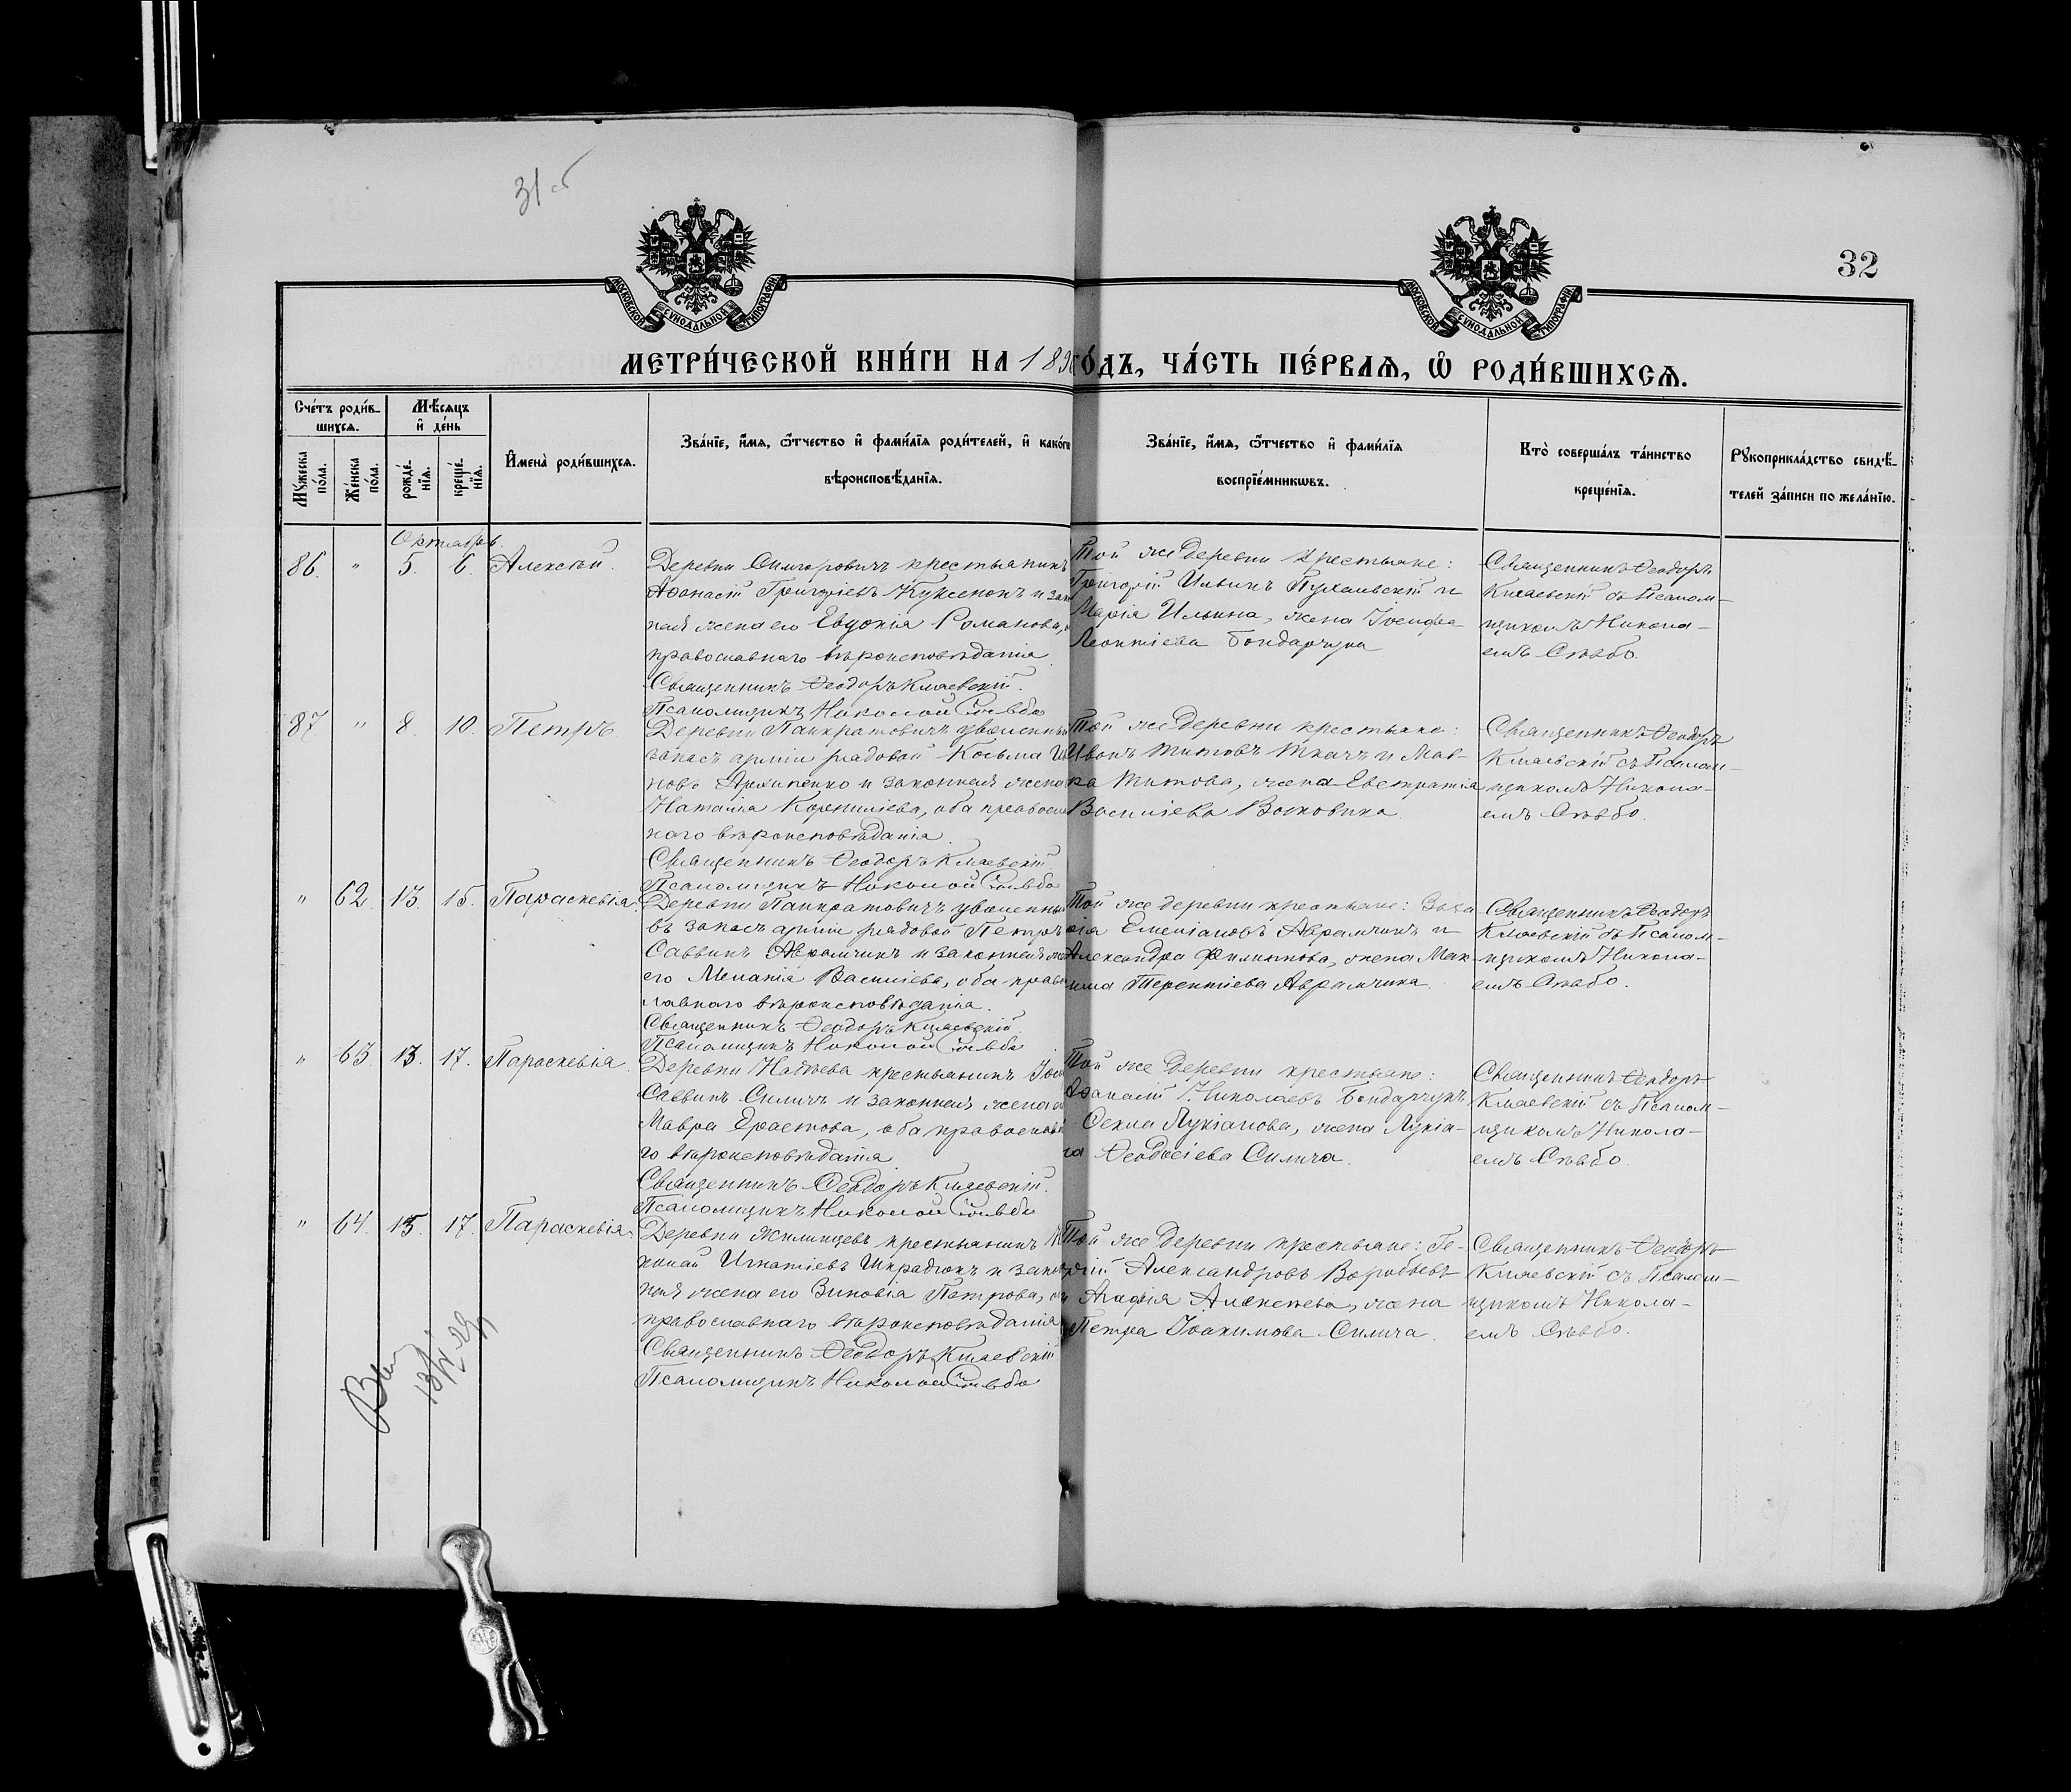 31 об
32
МОСКОВСКОЙ СѴНОДАЛЬНОЙ ТИПОГРАФІИ
МОСКОВСКОЙ СѴНОДАЛЬНОЙ ТИПОГРАФІИ
МЕТРИ́ЧЕСКОЙ КНИ́ГИ НА 189 ГО́ДЪ, ЧА́СТЬ ПЕ́РВАѦ, Ѿ РОДИ́ВШИХСѦ.
Сче́тъ роди́в-
шихсѧ.
Мꙋ́жеска по́ла.
Же́нска по́ла.
Мѣ́сѧцъ
и҆ де́нь
рожде́-нїѧ.
креще́-нїѧ.
И҆мена̀ роди́вшихсѧ.
Зва́нїе, и҆́мѧ, ѻ҆́тчество и҆ фами́лїѧ роди́телей, и҆ како́гѡ
вѣроисповѣ́данїѧ.
Зва́нїе, и҆́мѧ, ѻ҆́тчество и҆ фами́лїѧ
воспрїе́мникѡвъ.
Кто̀ соверша́лъ та́инство
креще́нїѧ.
Рꙋкоприкла́дство свидѣ́-
телей за́писи по жела́нїю.
Октябрь.
86. " 5. 6. Алексѣй.
Деревни Симоровичъ крестьянинъ
Аѳанасій Григоріевъ и
ная жена его Евдокія Романова,
православнаго вѣроисповѣданія
Священникъ Ѳеодоръ Кляевскій.
Псаломщикъ Николай Сѣвбо
Той же деревни крестьяне:
Григорій Ильинъ Пухальскій и
Марія Ильина, жена Іосифа
Леонтіева Бондарчука
Священникъ Ѳеодоръ
Кляевскій съ Псалом-
щикомъ Никола-
емъ Сѣвбо.
87 " 8. 10. Петръ.
Деревни Панкратовичъ уволенный
запасъ арміи рядовой Косьма
новъ Архипенко и законная жена
Наталія Корниліева, оба правосл
наго вѣроисповѣданія.
Священникъ Ѳеодоръ Кляевскій
Псаломщикъ Николай Сѣвбо
Той же деревни крестьяне:
Иванъ Титовъ Ткачъ и Мав-
ра Титова, жена Евстратія
Василіева Волковика.
Священникъ Ѳеодоръ
Кляевскій съ Псалом-
щикомъ Никола-
емъ Сѣвбо.
" 62. 13. 15. Параскевія.
Деревни Панкратовичъ уволенный
въ запасъ арміи рядовой Петръ
Саввинъ Аврамчикъ и законная
его Меланія Василіева, оба право
лавнаго вѣроисповѣданія.
Священникъ Ѳеодоръ Кляевскій
Псаломщикъ Николай Сѣвбо
Той же деревни крестьяне: Заха
рія Емеліановъ Аврамчикъ и
Александра Филипова, жена Мак-
сима Терентіева Аврамчика.
Священникъ Ѳеодоръ
Кляевскій съ Псалом-
щикомъ Никола-
емъ Сѣвбо.
" 63. 13. 17. Параскевія.
Деревни крестьянинъ
Саввинъ Силичъ и законная жена
Мавра Ерастова, оба православна
го вѣроисповѣданія
Священникъ Ѳеодоръ Кляевскій.
Псаломщикъ Николай Сѣвбо
Той же деревни крестьяне:
Аѳанасій Николаевъ Бондарчукъ
Ѳекла Лукіанова, жена Лукіа-
на Ѳеодосіева Силича.
Священникъ Ѳеодоръ
Кляевскій съ Псалом-
щикомъ Никола-
емъ Сѣвбо.
" 64. 15. 17. Параскевія.
Деревни Жилинцевъ крестьянинъ
колай Игнатіевъ Шкрадюкъ и закон
ная жена его Зиновія Петрова,
православнаго вѣроисповѣданія
Священникъ Ѳеодоръ Кляевскій
Псаломщикъ Николай Сѣвбо
Той же деревни крестьяне: Ге-
оргій Александровъ Воробьевъ
и Агафія Алексѣева, жена
Петра Іоакимова Силича.
Священникъ Ѳеодоръ
Кляевскій съ Псалом-
щикомъ Никола-
емъ Сѣвбо.